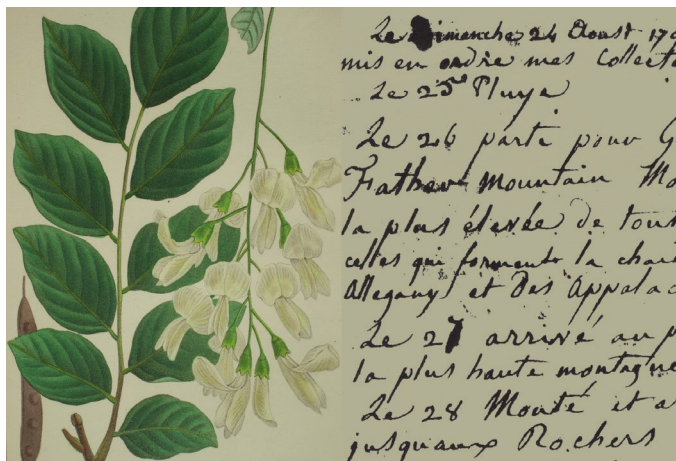 Le Dimanche 24 Aoust 17
mis en ordre mes Collect
Le 25 Pluye
Le 26 parti pour G
Father Mountain Mo
la plus élevée de tous
celles qui forment la chai
Allegany et Des Appalac
Le 27 arrivé au p
la plus haute montagne
Le 28 Monté et a
jusquaux Rochers